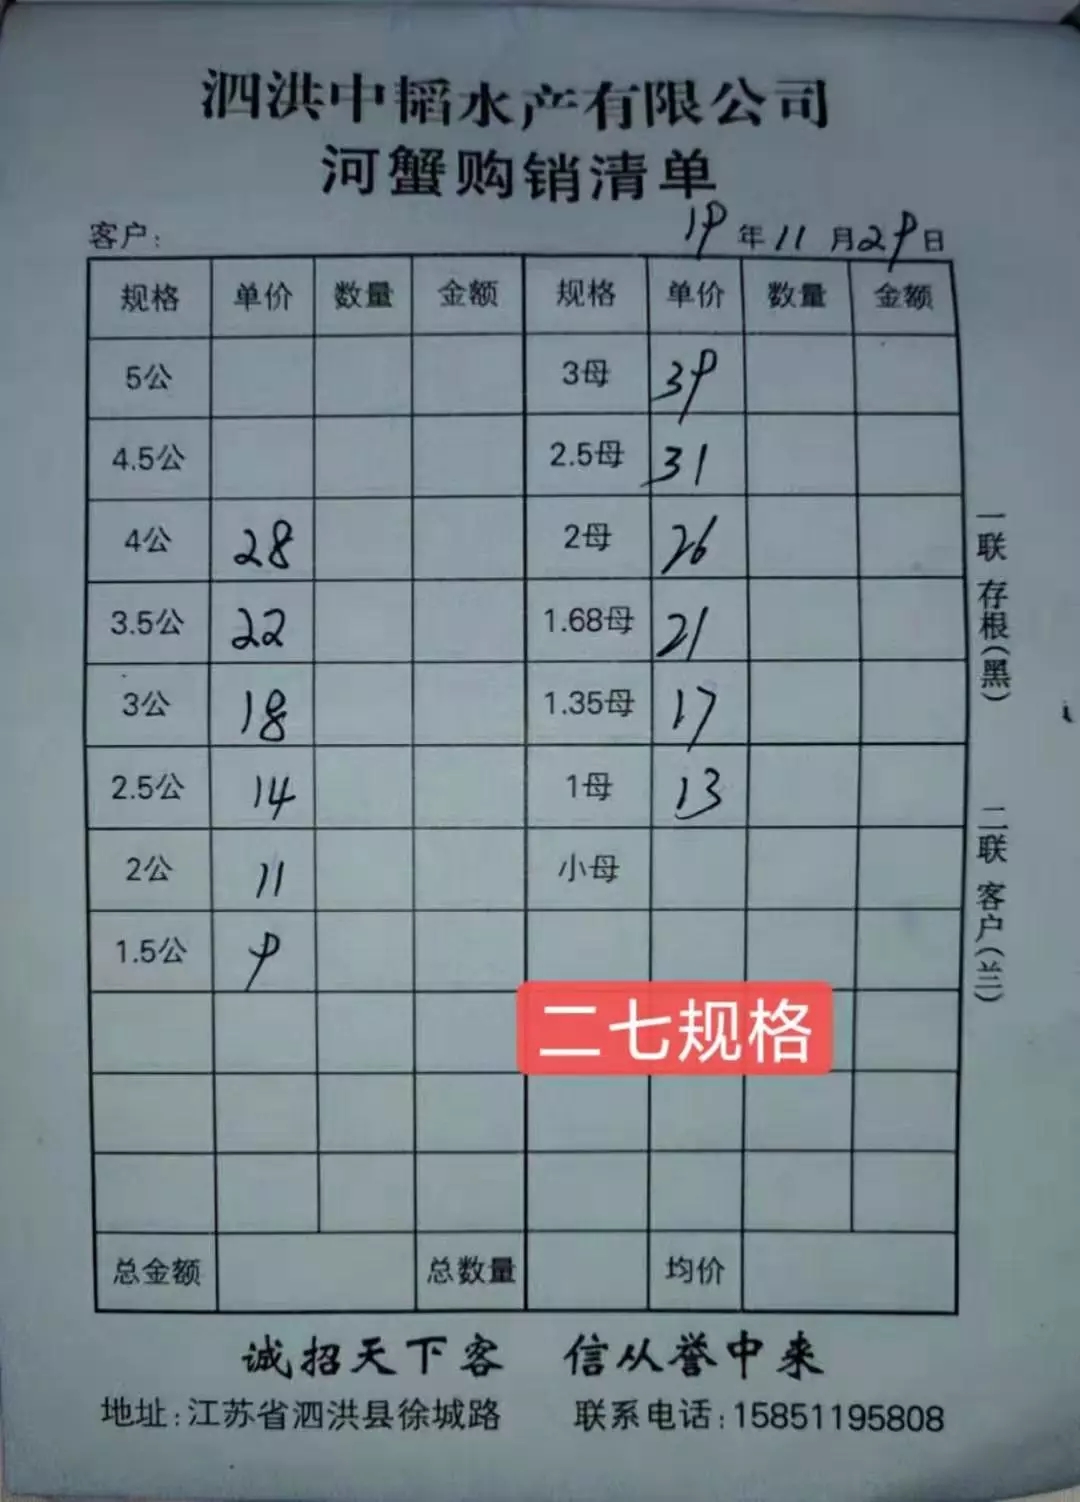 泗洪中韬水产有限公司
河蟹购销清单
客户: 19年11月29日
规格 单价 数量 金额 规格 单价 数量 金额
5公 3母 39
4.5公 2.5母 31
4公 28 2母 26
3.5公 22 1.68母 21
3公 18 1.35母 17
2.5公 14 1母 13
2公 11 小母
1.5公 9
二七规格
总金额 总数量 均价
一联 存根(黑)
二联 客户(兰)
诚招天下客 信从誉中来
地址:江苏省泗洪县徐城路 联系电话:15851195808